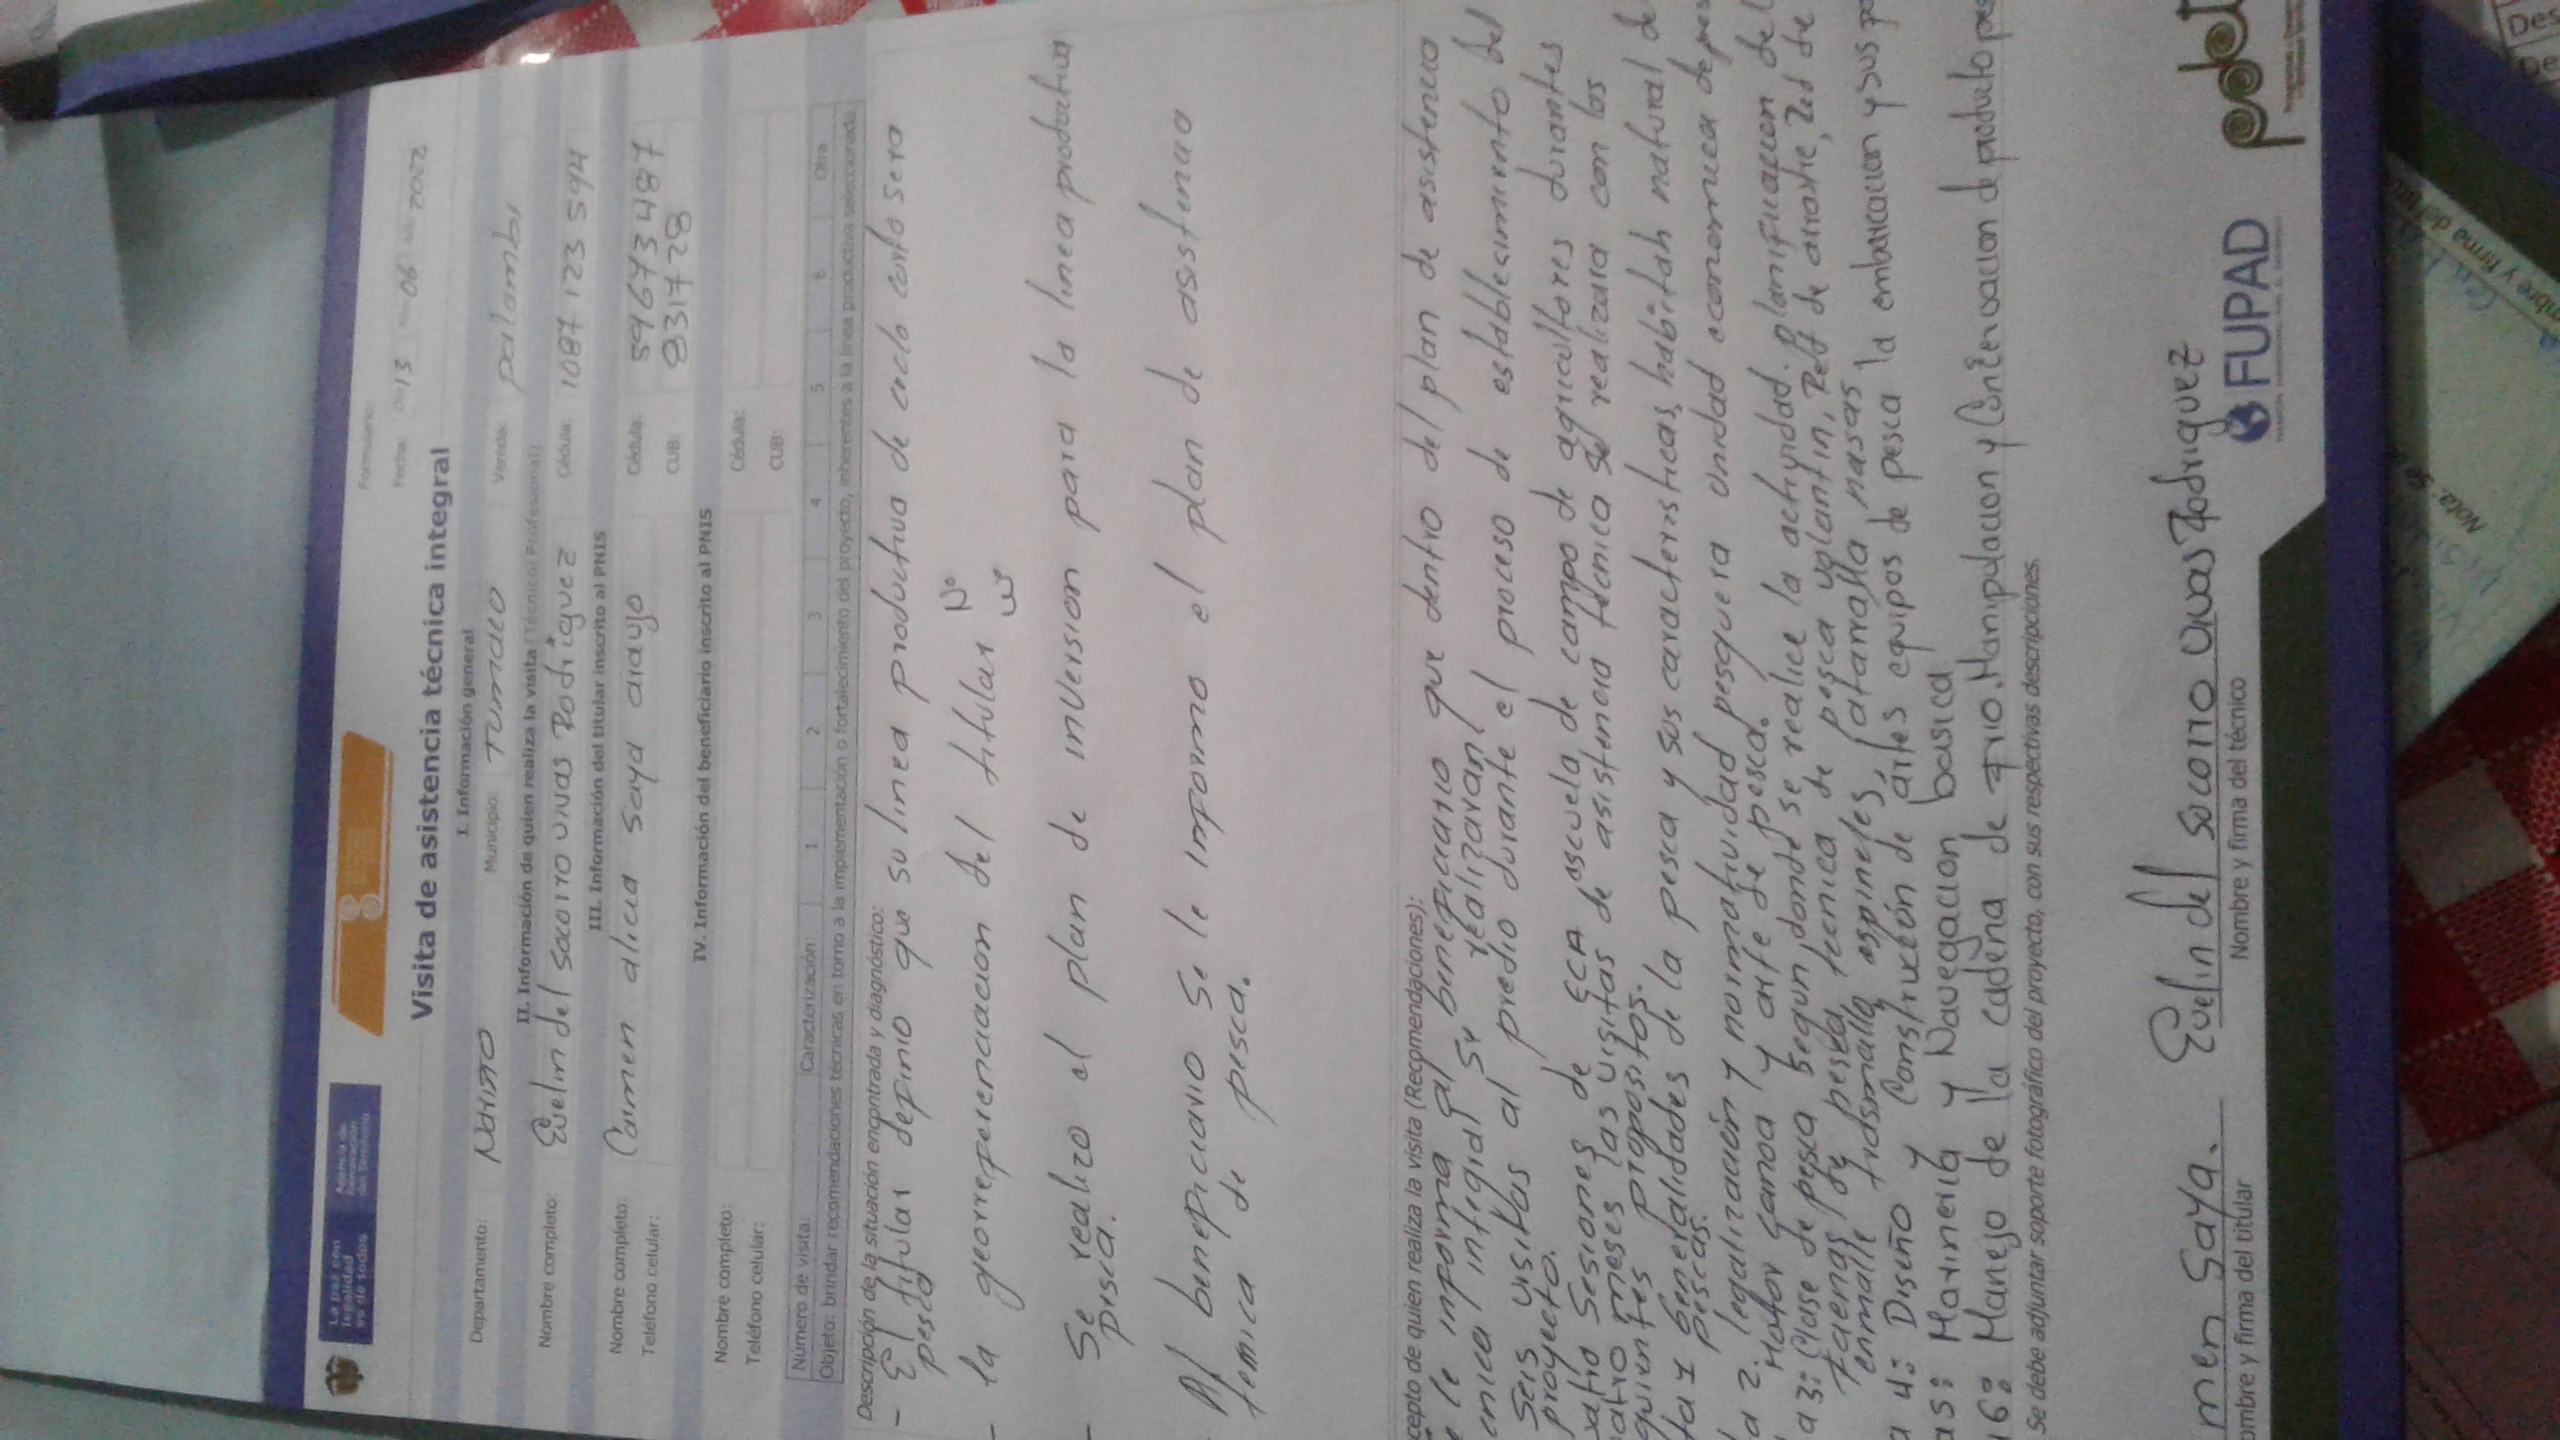 La paz con
legalidad
es de todos
Agencia de
Renovación
del Territorio
Formulario:
Visita de asistencia técnica integral
Fecha: 13 06 2022
I. Información general
Departamento: Nariño Municipio: Tumaco Vereda: palambi
II. Información de quien realiza la visita (Técnico/Profesional)
Nombre completo: Evelin del socorro vivas Rodriguez Cédula: 1087 123 594
III. Información del titular inscrito al PNIS
Nombre completo: Carmen alicia saya araujo Cédula: 59673487
Teléfono celular: CUB: 831728
IV. Información del beneficiario inscrito al PNIS
Nombre completo: Cédula:
Teléfono celular: CUB:
Número de visita: Caracterización: 1 2 3 4 5 6 Otra
Objeto: brindar recomendaciones técnicas en torno a la implementación o fortalecimiento del proyecto, inherentes a la línea productiva seleccionada.
Descripción de la situación encontrada y diagnóstico:
- El titular definio que su linea productiva de ciclo corto sera
pesca
- la georreferenciacion del titular N°
W°
- Se realizo el plan de inversion para la linea productiva
pesca.
Al beneficiario Se le informo el plan de asistencia
tecnica de pesca.
cepto de quien realiza la visita (Recomendaciones):
e le informa al beneficiario que dentro del plan de asistencia
cnica integral se realizaran
Seis visitas al predio durante el proceso de establecimiento del
proyecto.
uatro Sesiones de ECA escuela de campo de agricultores durantes
uatro meses las visitas de asistencia tecnica se realizara con los
guientes propositos.
ta 1 Generalidades de la pesca y sus caracteristicas, habitah natural de
pescas.
ta 2. legalización y normatividad pesquera unidad economica de pes
Motor canoa y arte de pesca.
a 3: Clase de pesca segun donde se realice la actividad. planificacion del
faenas de pesca tecnica de pesca volantin, Red de arrastre, Red de
enmalle trasmallo espineles, atarralla nasas
a 4: Diseño y Construcción de artes equipos de pesca la embarcacion y sus pa
a 5: Marineria y Navegacion basica
a 6: Manejo de la cadena de frio. Manipulacion y Conservacion de producto pes
Se debe adjuntar soporte fotográfico del proyecto, con sus respectivas descripciones.
men Saya. Evelin del socorro vivas Rodriguez
ombre y firma del titular Nombre y firma del técnico
FUPAD
pdet
Nota: Se
mbre y firma del
Des
De